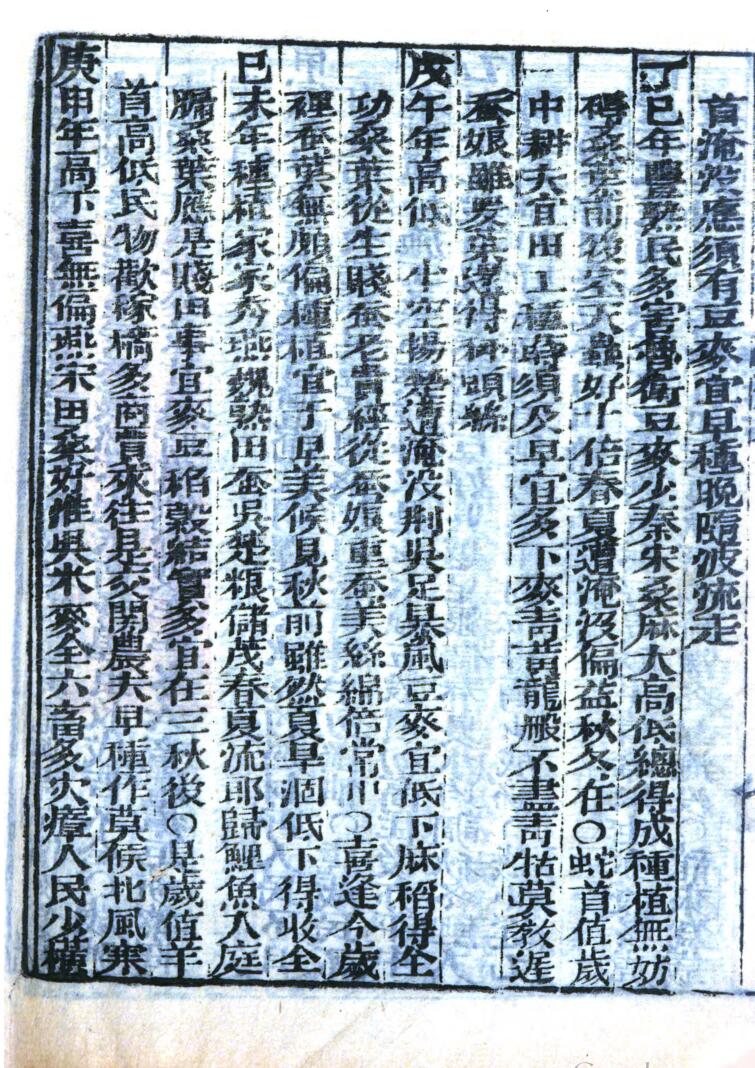 首淹没應須有豆麥宜早種晚隨波流走
丁巳年豐熟民多害魯衛豆麥少秦宋桑麻大高低總得成種植無妨
碍桑葉前後空天蟲好十倍春夏遭淹没偏益秋冬在○蛇首值歲
中耕夫宜田工種蒔須及早宜多下麥青黄龍搬不盡青牯莫教遲
蚕娘雖哭葉還得秤頭絲
戊午年高低一半空揚楚遭淹没荆吳足暴風豆麥宜低下麻稻得全
功桑葉從生賤蚕老貴經從蚕娘重蚕美絲綿倍常中○喜逢今歲
裡蚕葉無頗偏種植宜于早美候見秋前雖然夏旱涸低下得收全
己未年種植家家秀燕魏熟田蚕吳楚粮儲茂春夏流郎歸鯉魚入庭
牖桑葉應是賤田事宜麥豆稻穀結實多宜在三秋後○是歲值羊
首高低民物歡稼穡多商賈來往足交関農夫早種作莫候北風寒
庚申年高下喜無偏燕宋田桑好淮吳米麥全六畜多災瘴人民少横